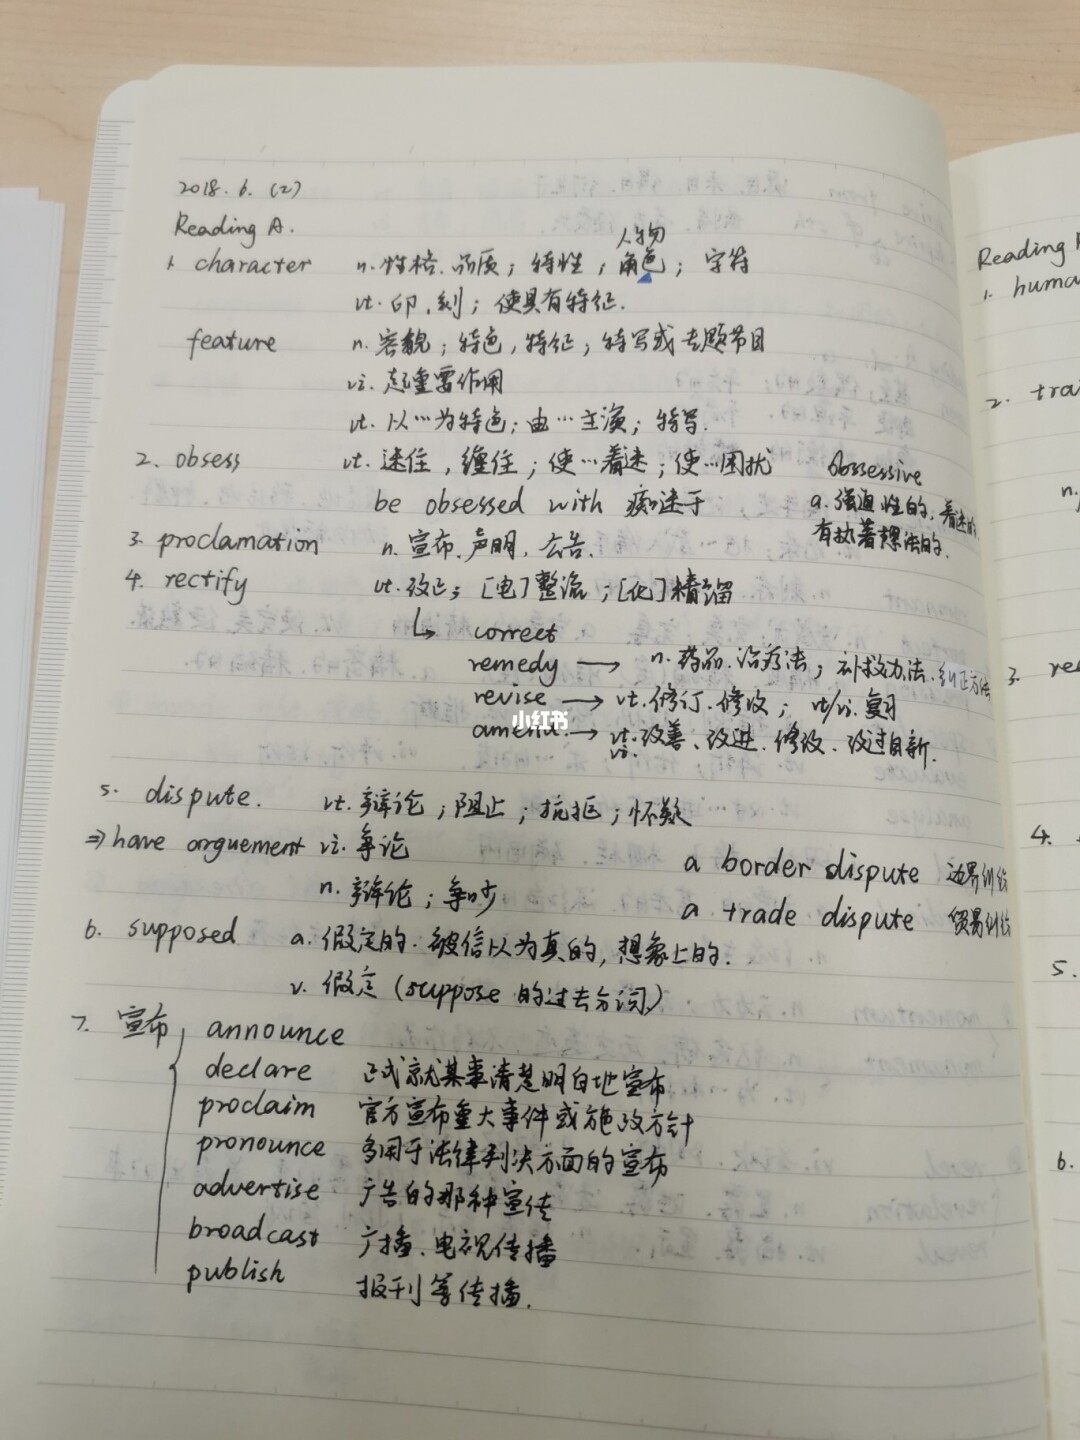 2018.6.(2)
Reading A.
1. character n.性格.品质；特性；角色；字符
人物
vt.印,刻；使具有特征.
feature n.容貌；特色,特征；特写或专题节目
vi.起重要作用
vt.以…为特色；由…主演；特写.
2. obsess vt.迷住,缠住；使…着迷；使…困扰 obsessive
be obsessed with 痴迷于 a.强迫性的,着迷的
有执着想法的.
3. proclamation n.宣布.声明,公告.
4. rectify vt.改正；[电]整流；[化]精馏
↳ correct
remedy → n.药品.治疗法；补救办法.纠正方法
revise → vt.修订.修改； vt/vi.复习
小红书
amend. → vt.改善、改进.修改.改过自新.
vi.
5. dispute. vt.辩论；阻止；抗拒；怀疑
⇒have arguement vi.争论
a border dispute 边界纠纷
n.辩论；争吵
a trade dispute 贸易纠纷
6. supposed a.假定的.被信以为真的,想象上的.
v.假定(suppose的过去分词)
7. 宣布 announce
declare 正式就某事清楚明白地宣布
proclaim 官方宣布重大事件或施政方针
pronounce 多用于法律判决方面的宣布
advertise 广告的那种宣传
broadcast 广播、电视传播
publish 报刊等传播.
Reading
1. huma
2. tra
n.
3. re
4.
5.
6.